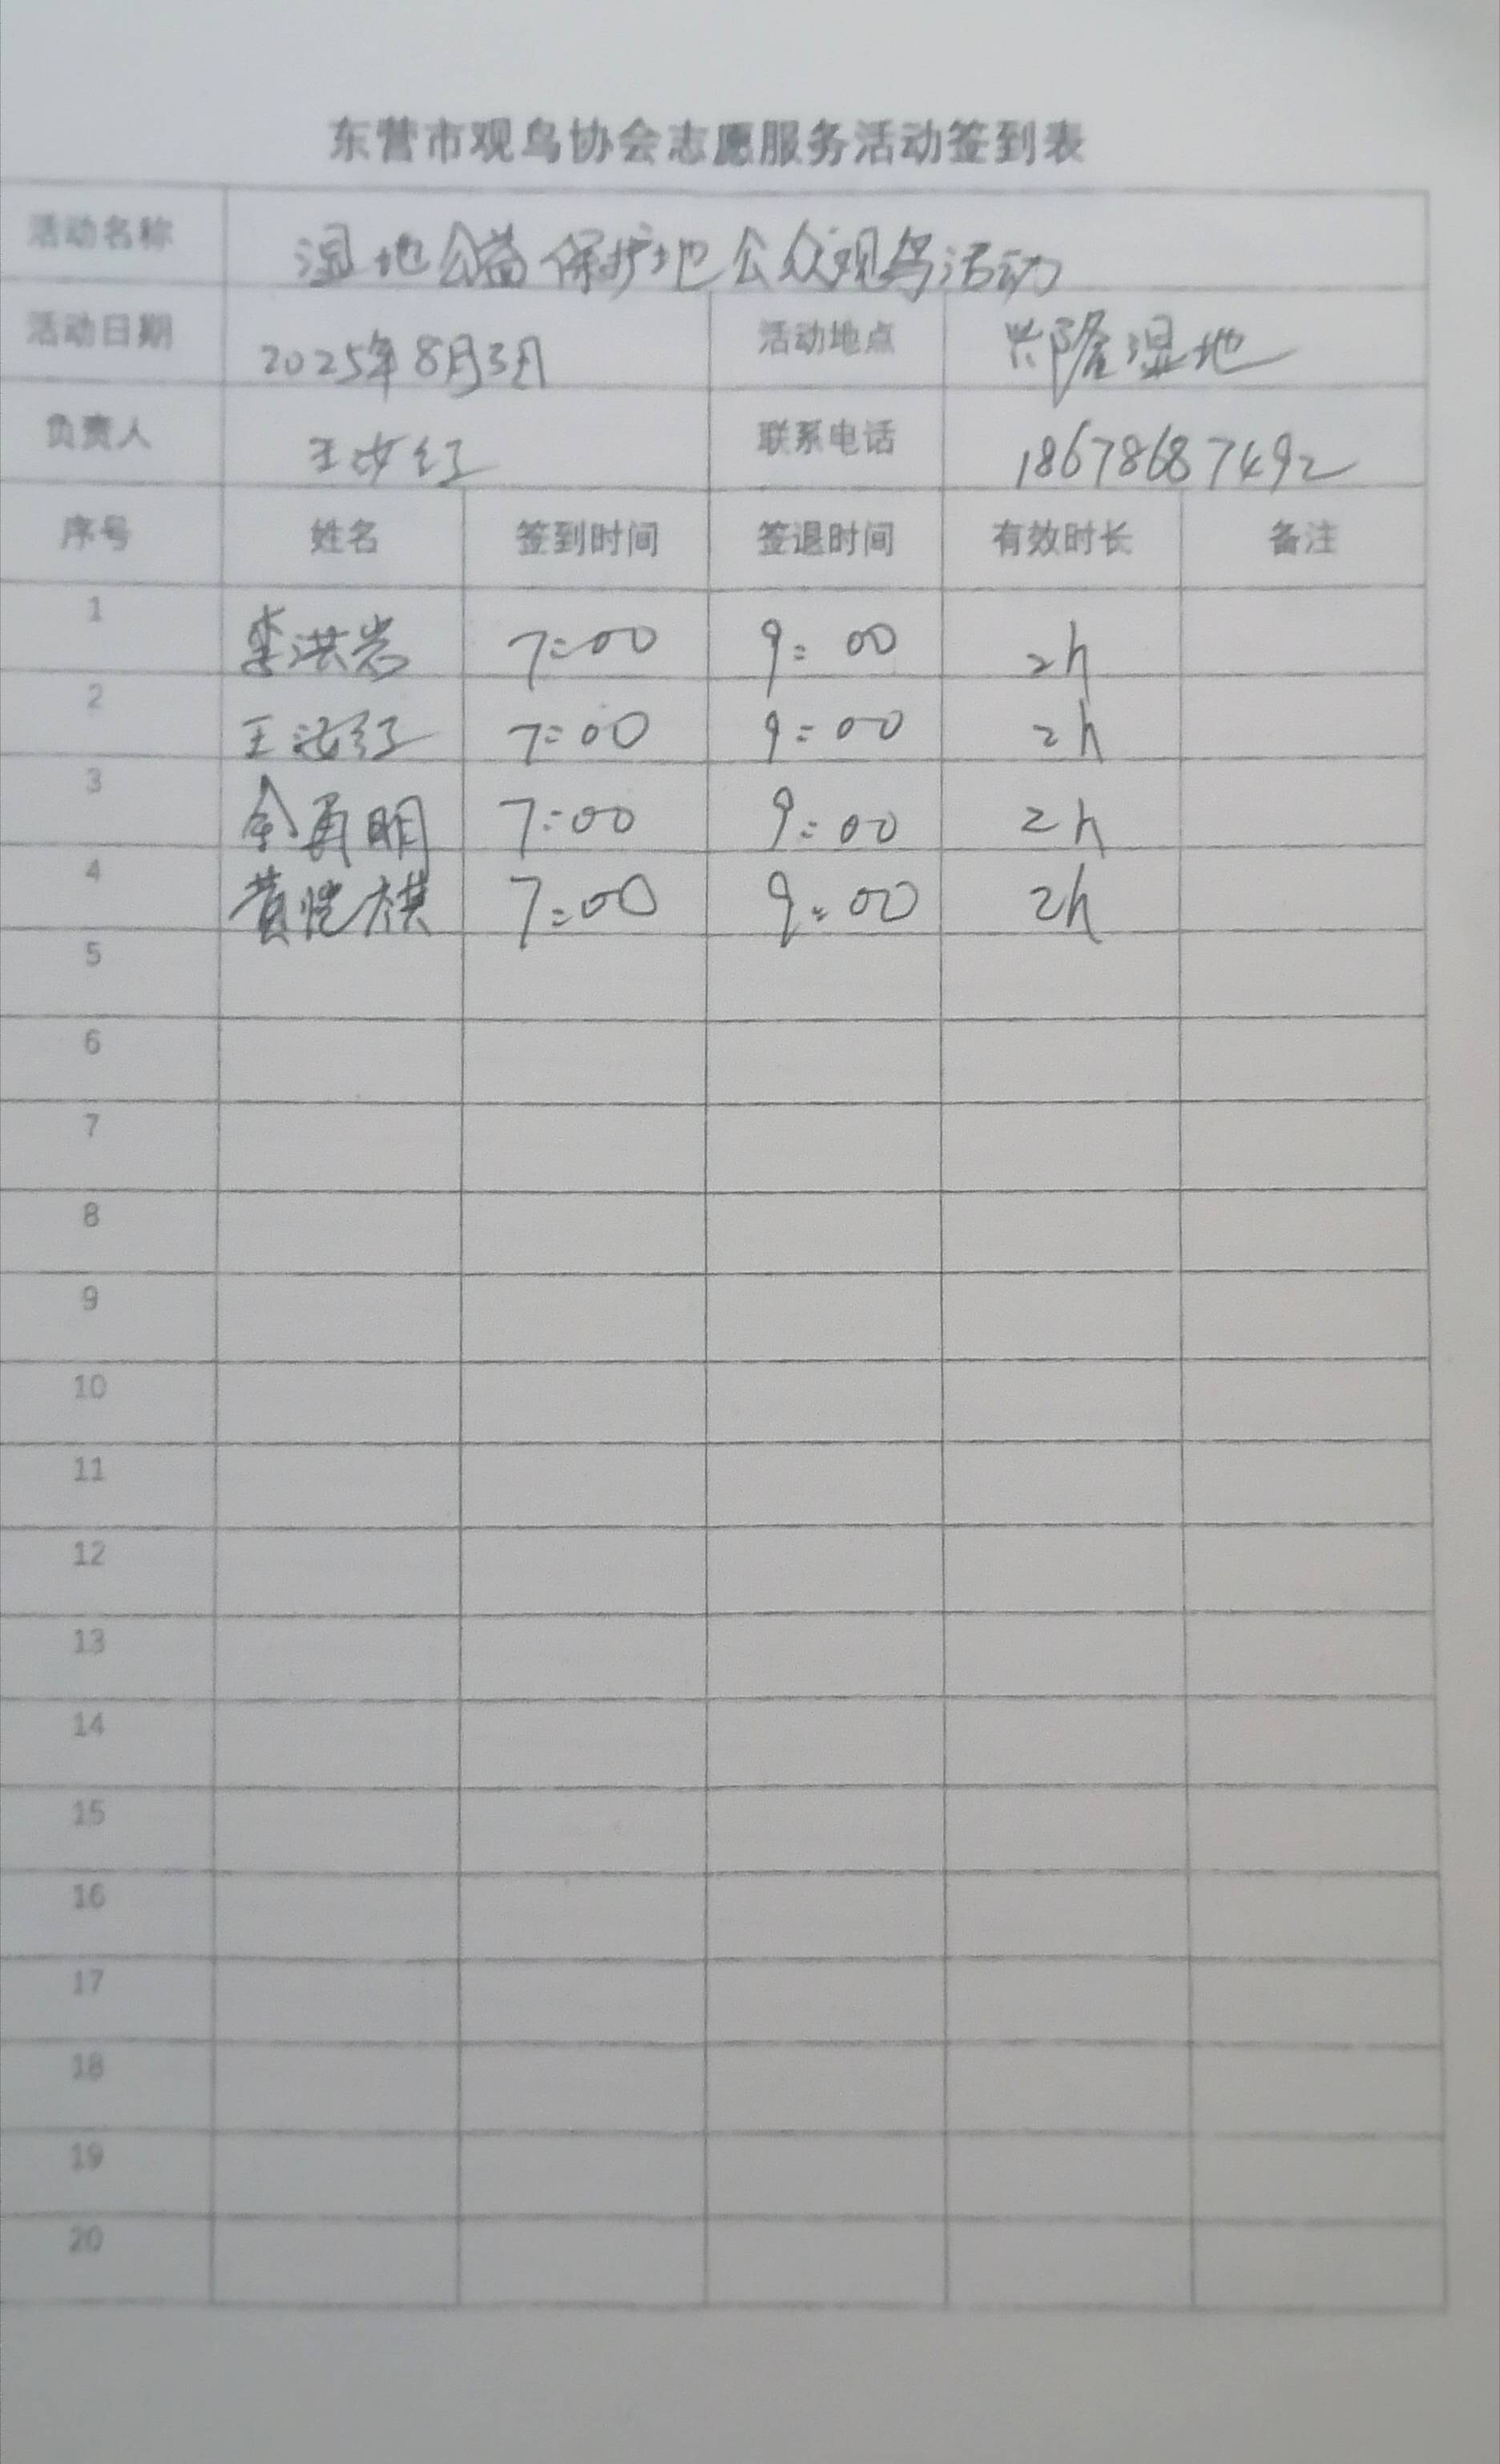 东营市观鸟协会志愿服务活动签到表
活动名称 湿地公益保护地公众观鸟活动
活动日期 2025年8月3日 活动地点 兴隆湿地
负责人 王汝红 联系电话 18678687492
序号 姓名 签到时间 签退时间 有效时长 备注
1 李洪岩 7:00 9:00 2h
2 王汝红 7:00 9:00 2h
3 余再明 7:00 9:00 2h
4 黄恺祺 7:00 9:00 2h
5
6
7
8
9
10
11
12
13
14
15
16
17
18
19
20